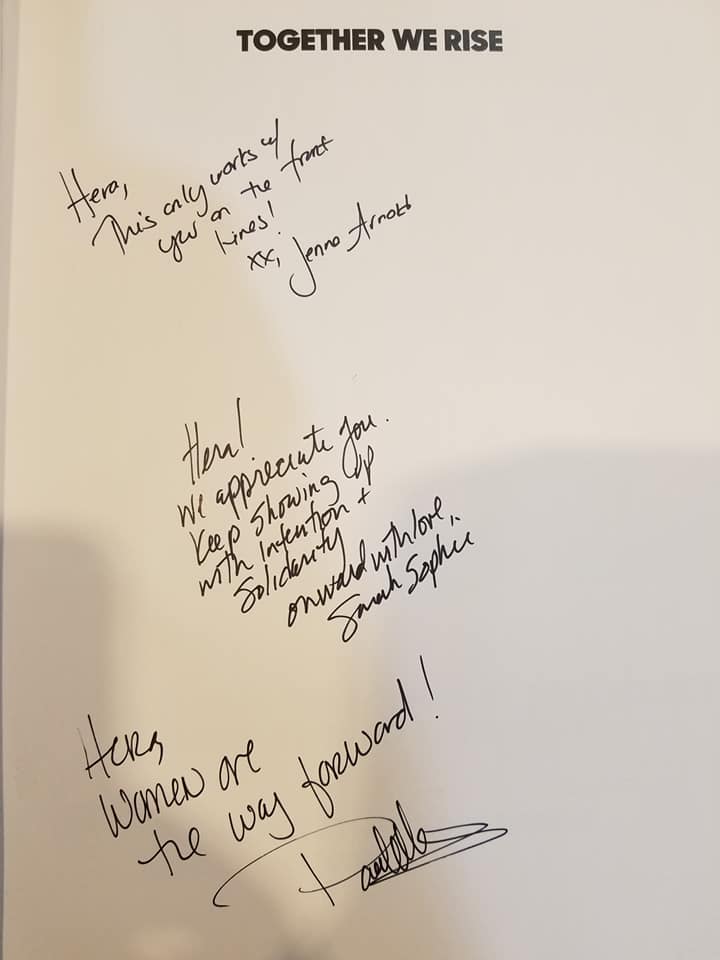 TOGETHER WE RISE
Hera,
This only works w/
you on the front
lines!
xx, Jenna Arnold
Hera!
We appreciate you.
Keep Showing Up
with Intention +
Solidarity
onward with love,
Sarah Sophie
Hera,
Women are
the way forward!